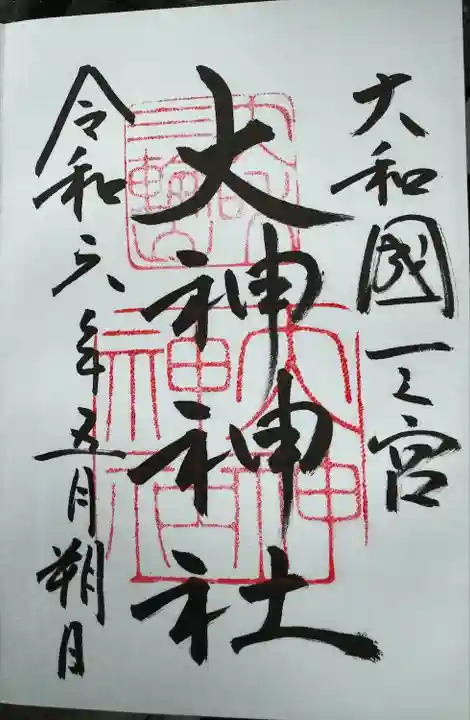 大和國一之宮
大神神社
令和六年五月朔日
大神
神社